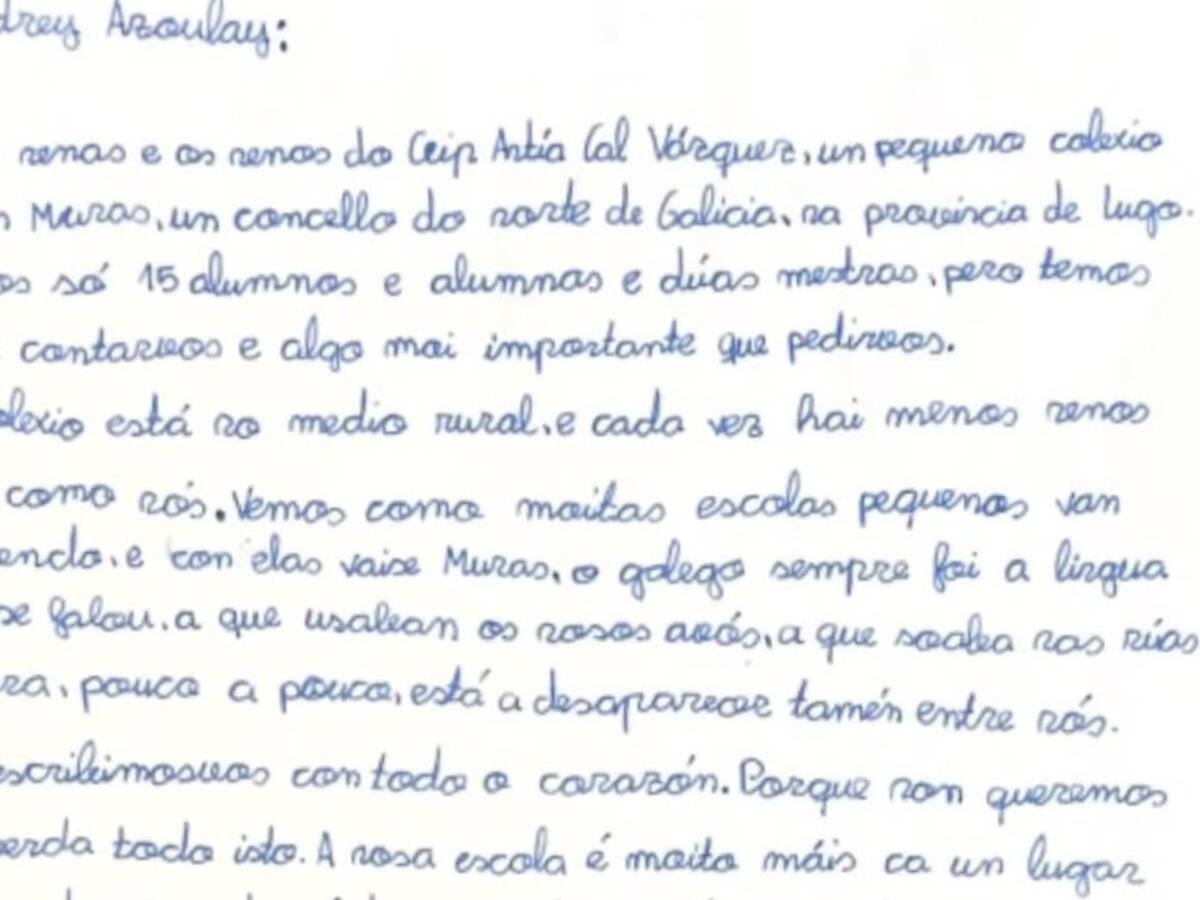 drey Azoulay:
nenas e os nenos do Ceip Antía Cal Vázquez, un pequeno colexio
n Muras, un concello do norte de Galicia, na provincia de Lugo.
os só 15 alumnos e alumnas e dúas mestras, pero temos
contarvos e algo moi importante que pedirvos.
olexio está no medio rural, e cada vez hai menos nenos
como nós. Vemos como moitas escolas pequenas van
endo, e con elas vaise Muras, o galego sempre foi a lingua
se falou, a que usaban os nosos avós, a que soaba nas rúas
ra, pouco a pouco, está a desaparecer tamén entre nós.
escribímosvos con todo o corazón. Porque non queremos
erda todo isto. A nosa escola é moito máis ca un lugar